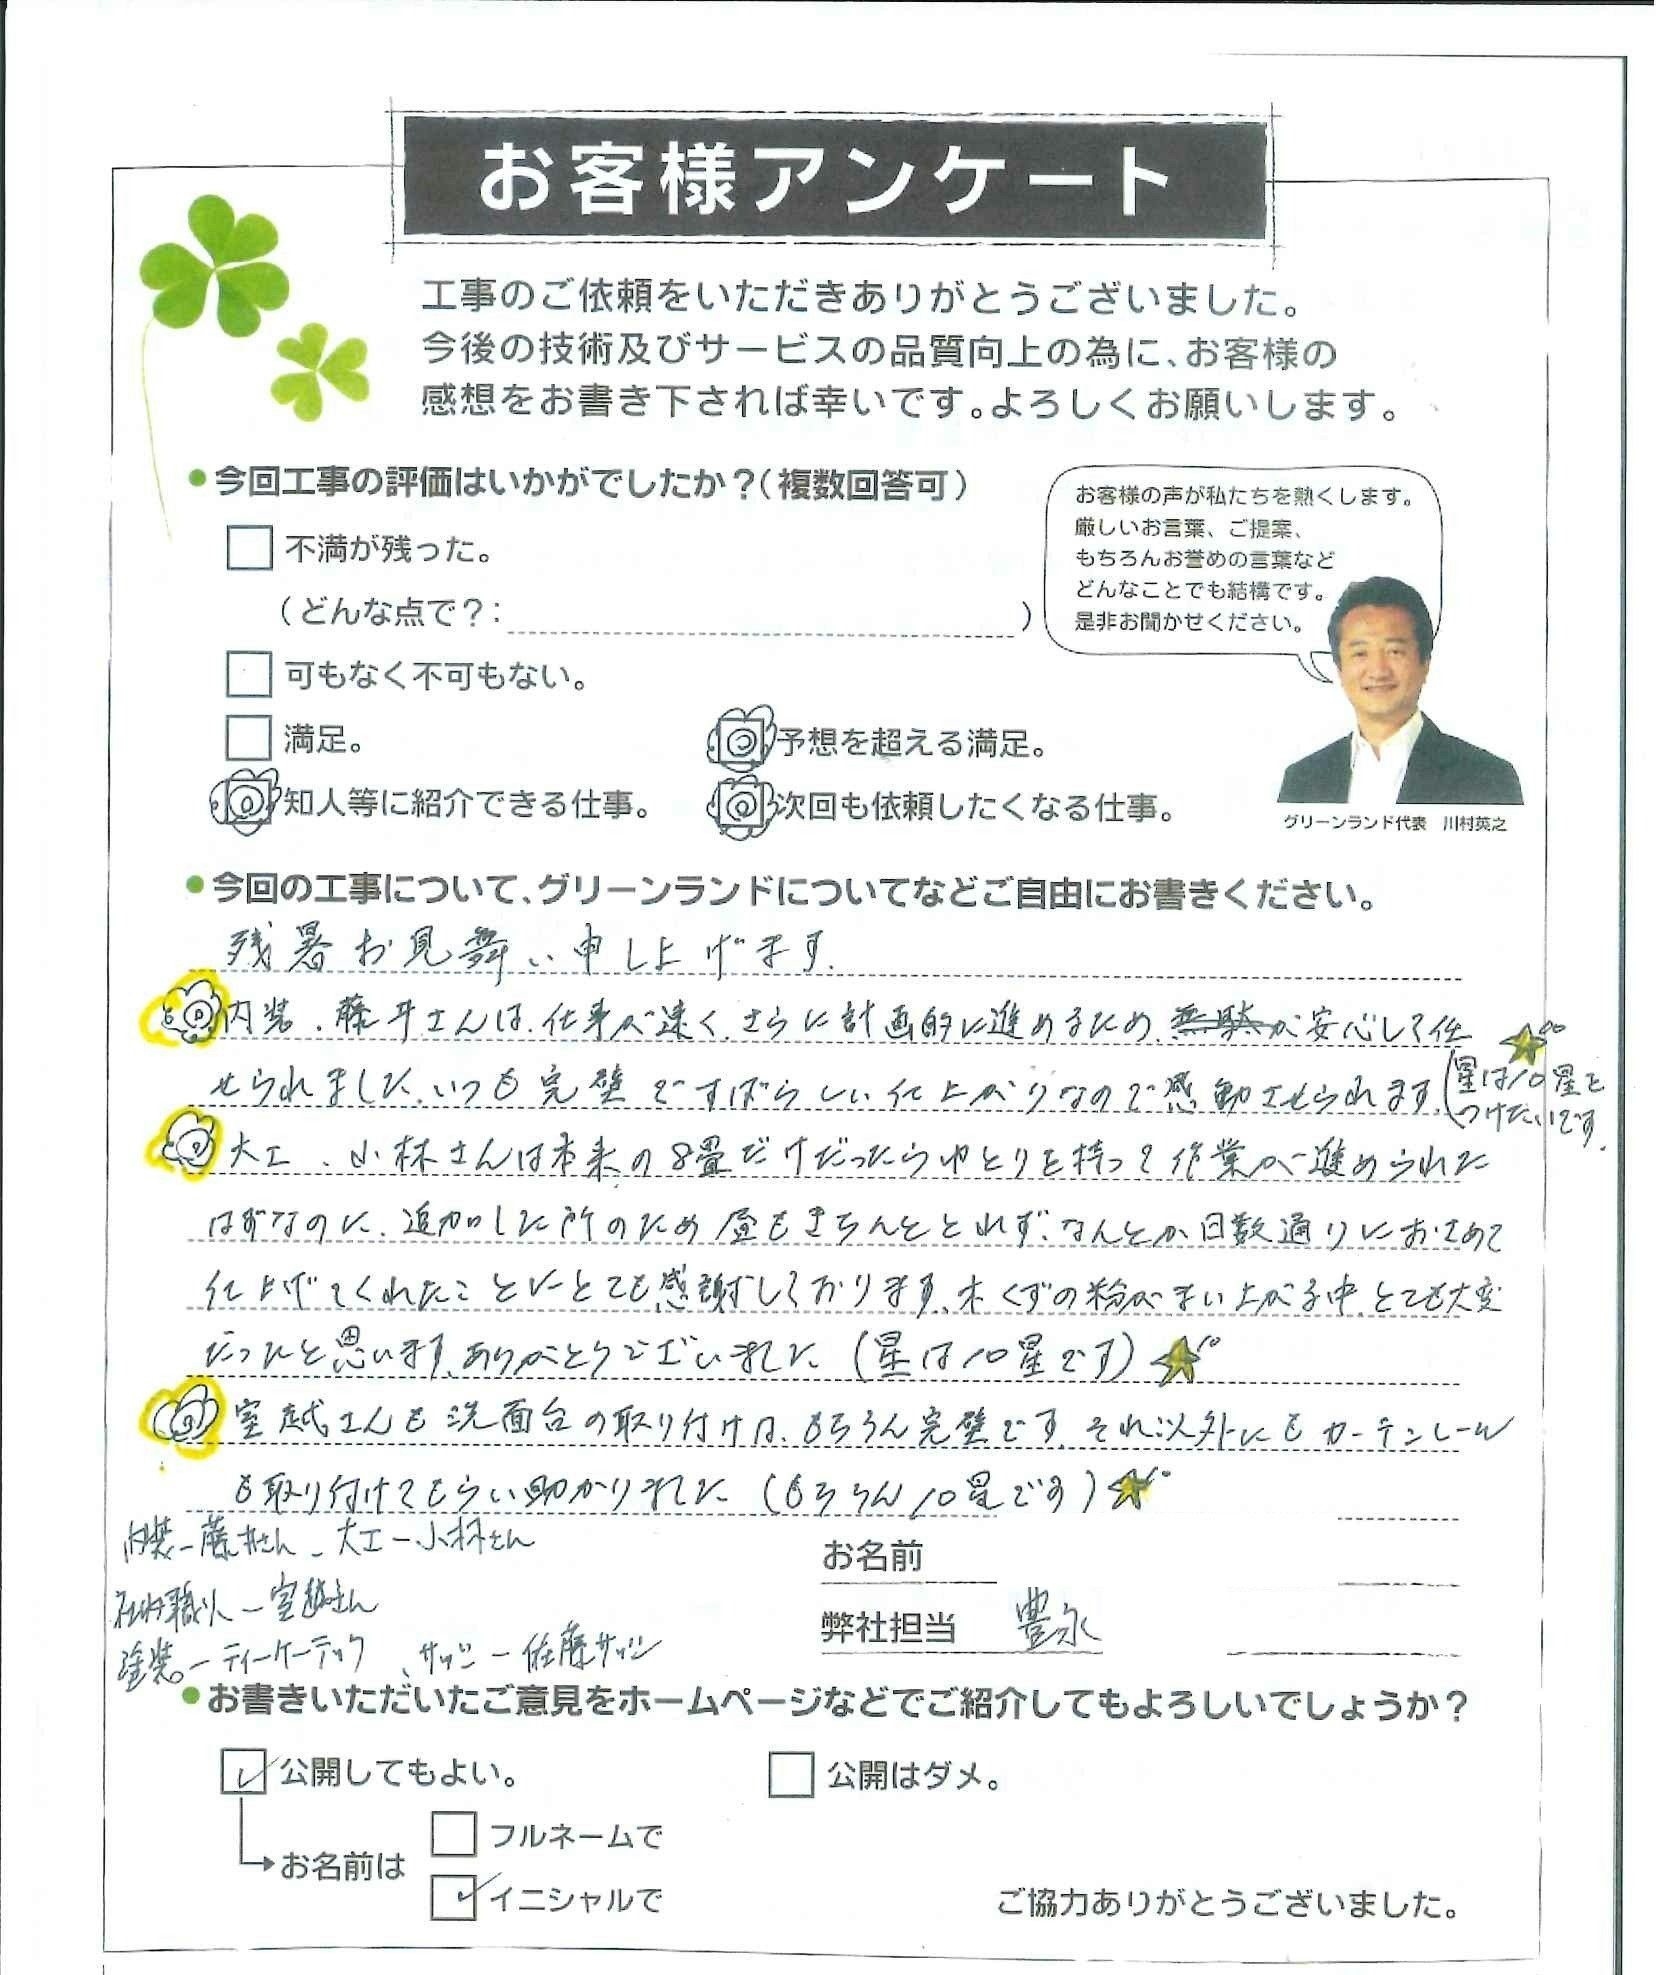 お客様アンケート
工事のご依頼をいただきありがとうございました。
今後の技術及びサービスの品質向上の為に、お客様の
感想をお書き下されば幸いです。よろしくお願いします。
●今回工事の評価はいかがでしたか？（複数回答可）
不満が残った。
（どんな点で？：　）
可もなく不可もない。
満足。
予想を超える満足。
知人等に紹介できる仕事。
次回も依頼したくなる仕事。
お客様の声が私たちを熱くします。
厳しいお言葉、ご提案、
もちろんお誉めの言葉など
どんなことでも結構です。
是非お聞かせください。
グリーンランド代表　川村英之
●今回の工事について、グリーンランドについてなどご自由にお書きください。
残暑お見舞い申し上げます。
内装、藤井さんは、仕事が速く、さらに計画的に進めるため、無駄が安心して任
せられました。いつも完璧ですばらしい仕上がりなので感動させられます。
(星は10星を
つけたいです。
大工、小林さんは本来の8畳だけだったらゆとりを持って作業が進められた
はずなのに、追加した所のため昼もきちんととれず、なんとか日数通りにおさめて
仕上げてくれたことにとても感謝しております。木くずの粉がまい上がる中、とても大変
だったと思います。ありがとうございました。(星は10星です)
室越さんも洗面台の取り付けは、もちろん完璧です。それ以外にもカーテンレール
も取り付けてもらい助かりました。(もちろん10星です)
内装ー藤井さん、大工ー小林さん
社内職人ー室越さん
塗装ーティーケーテック、サッシー佐藤サッシ
お名前
弊社担当　豊永
●お書きいただいたご意見をホームページなどでご紹介してもよろしいでしょうか？
公開してもよい。
公開はダメ。
お名前は
フルネームで
イニシャルで
ご協力ありがとうございました。